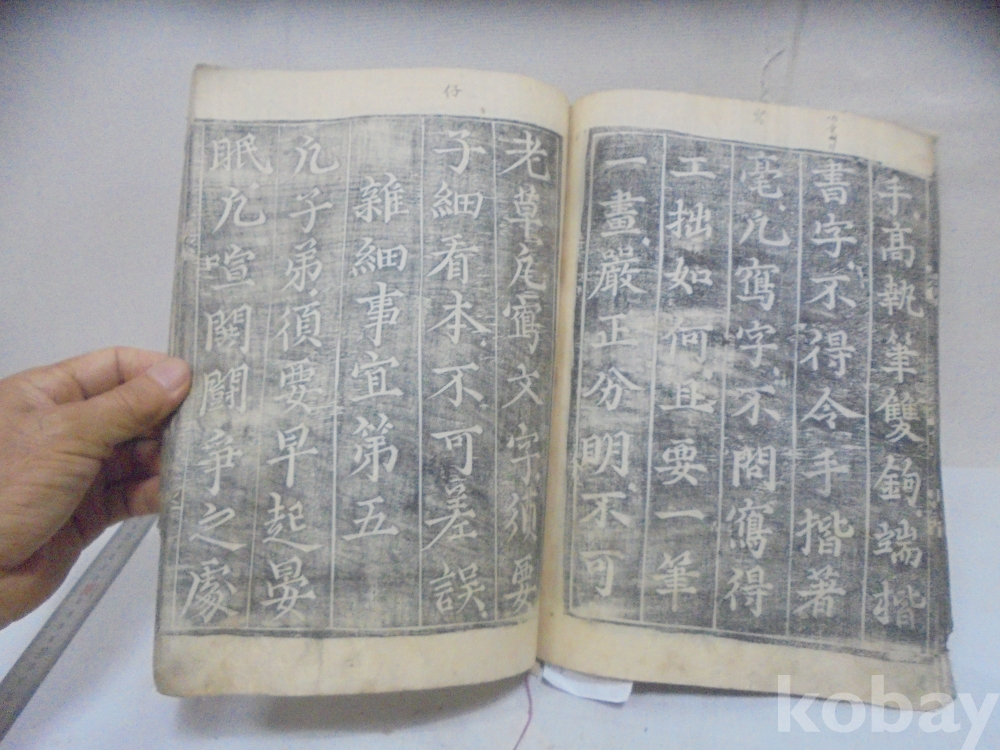 手高執筆雙鉤端楷
書字不得令手揩著
毫凡寫字不問寫得
工拙如何且要一筆
一畫嚴正分明不可
老草凡寫文字須要
仔
子細看本不可差誤
雜細事宜第五
凡子弟須要早起晏
眠凡喧鬨鬪爭之處
kobay